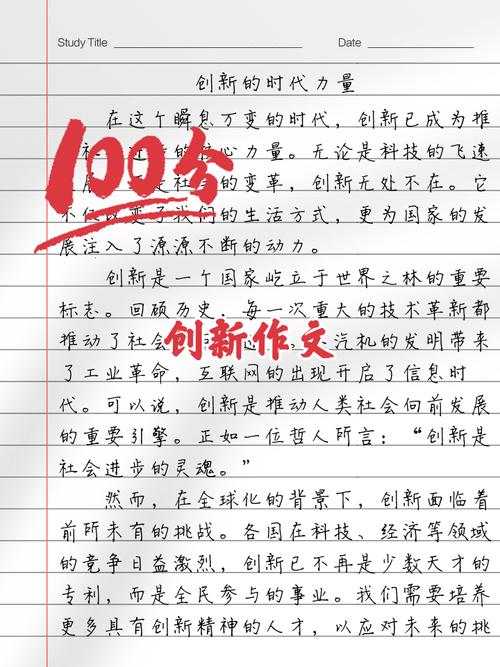 Study Title Date
创新的时代力量
在这个瞬息万变的时代，创新已成为推
100分
社 进 的核心力量。无论是科技的飞速
展 是社会的变革，创新无处不在。它
不仅改变了我们的生活方式，更为国家的发
展注入了源源不断的动力。
创新是一个国家屹立于世界之林的重要
标志。回顾历史，每一次重大的技术革新都
推动了社会 汽机的发明带来
创新作文
了工业革命，互联网的出现开启了信息时
代。可以说，创新是推动人类社会向前发展
的重要引擎。正如一位哲人所言：“创新是
社会进步的灵魂。”
然而，在全球化的背景下，创新面临着
前所未有的挑战。各国在科技、经济等领域
的竞争日益激烈，创新已不再是少数天才的
专利，而是全民参与的事业。我们需要培养
更多具有创新精神的人才，以应对未来的挑